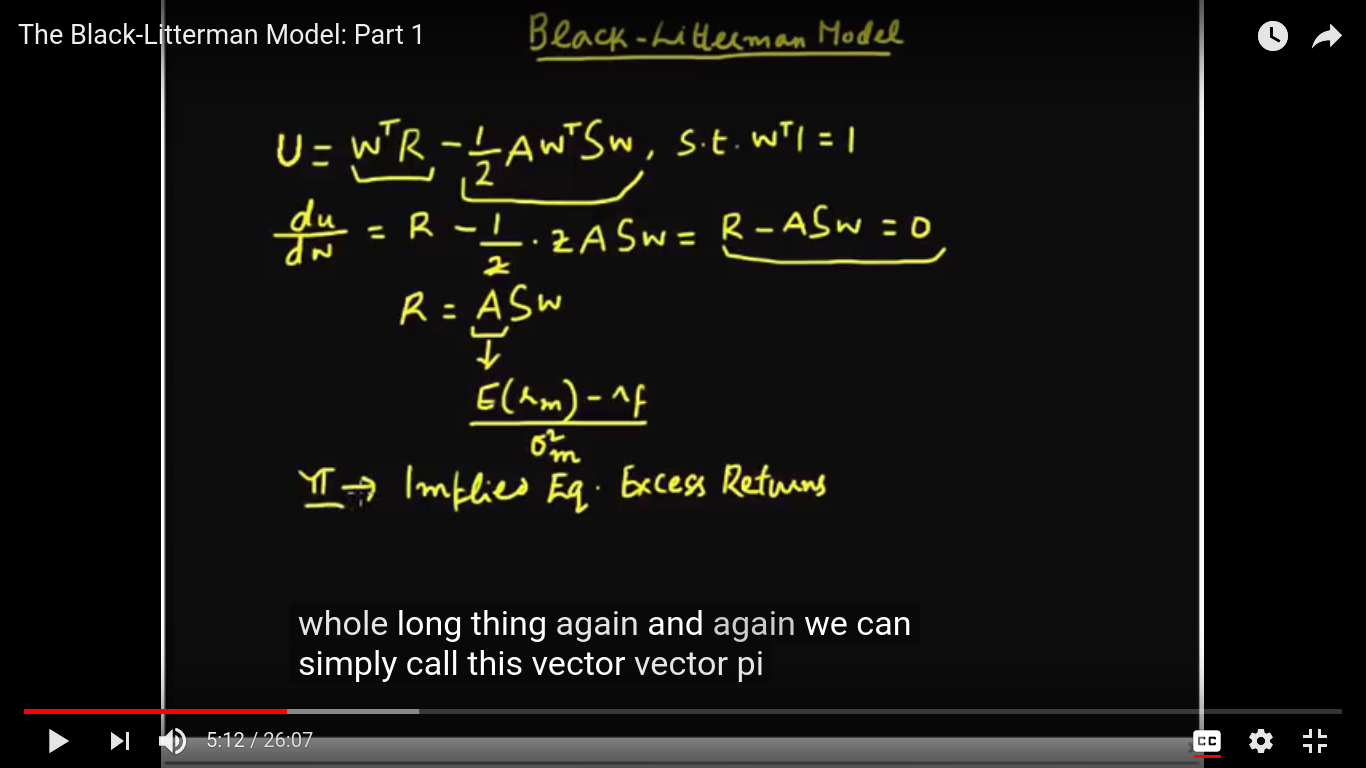 The Black-Litterman Model: Part 1
Black-Litterman Model
U = WᵀR - 1/2 A WᵀSw, s.t. wᵀ1 = 1
du/dw = R - 1/2 · 2ASw = R - ASw = 0
R = ASw
↓
E(rm) - rf / σ²m
π → Implied Eq. Excess Returns
whole long thing again and again we can
simply call this vector vector pi
5:12 / 26:07
CC